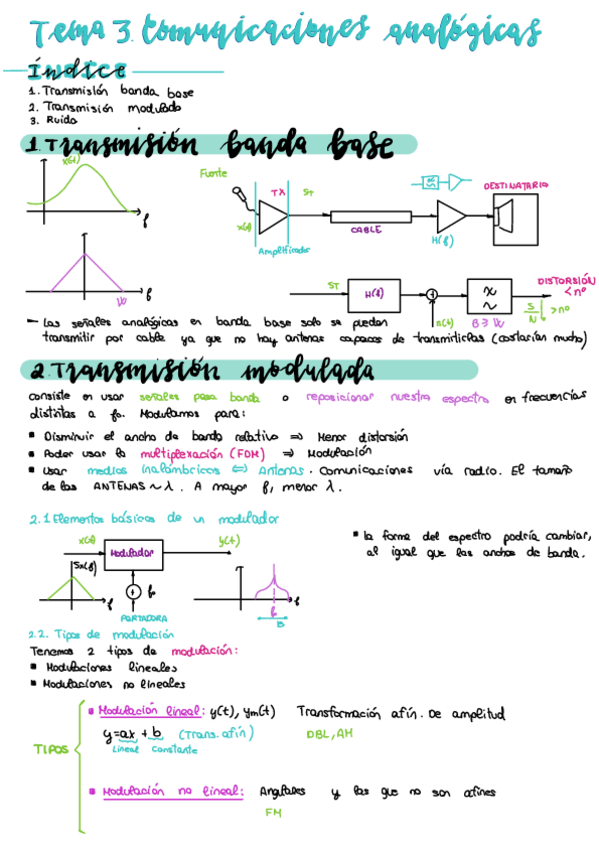 Tema 3. Comunicaciones analógicas
Índice
1. Transmisión banda base
2. Transmisión modulada
3. Ruido
1. Transmisión banda base
x(t)
f
Fuente
TX
ST
x(t)
Amplificador
CABLE
H(f)
DESTINATARIO
W
f
ST
H(f)
+
n(t)
B ≥ W
S/N
> nº
DISTORSIÓN
< nº
- Las señales analógicas en banda base solo se pueden
transmitir por cable ya que no hay antenas capaces de transmitirlas (costarían mucho)
2. Transmisión modulada
Consiste en usar señales paso banda o reposicionar nuestro espectro en frecuencias
distintas a fo. Modulamos para:
▪ Disminuir el ancho de banda relativo ⇒ Menor distorsión
▪ Poder usar la multiplexación (FDM) ⇒ Modulación
▪ Usar medios inalámbricos ⇔ Antenas. Comunicaciones vía radio. El tamaño
de las ANTENAS ~ λ. A mayor f, menor λ.
2.1 Elementos básicos de un modulador
x(t)
Modulador
y(t)
Sx(f)
f
+
fo
PORTADORA
f
fo
B
▪ La forma del espectro podría cambiar,
al igual que los anchos de banda.
2.2. Tipos de modulación
Tenemos 2 tipos de modulación:
▪ Modulaciones lineales
▪ Modulaciones no lineales
TIPOS
▪ Modulación lineal: y(t), ym(t) Transformación afín. De amplitud
y=ax + b (Trans. afín) DBL, AM
Lineal Constante
▪ Modulación no lineal: Angulares y las que no son afines
FM